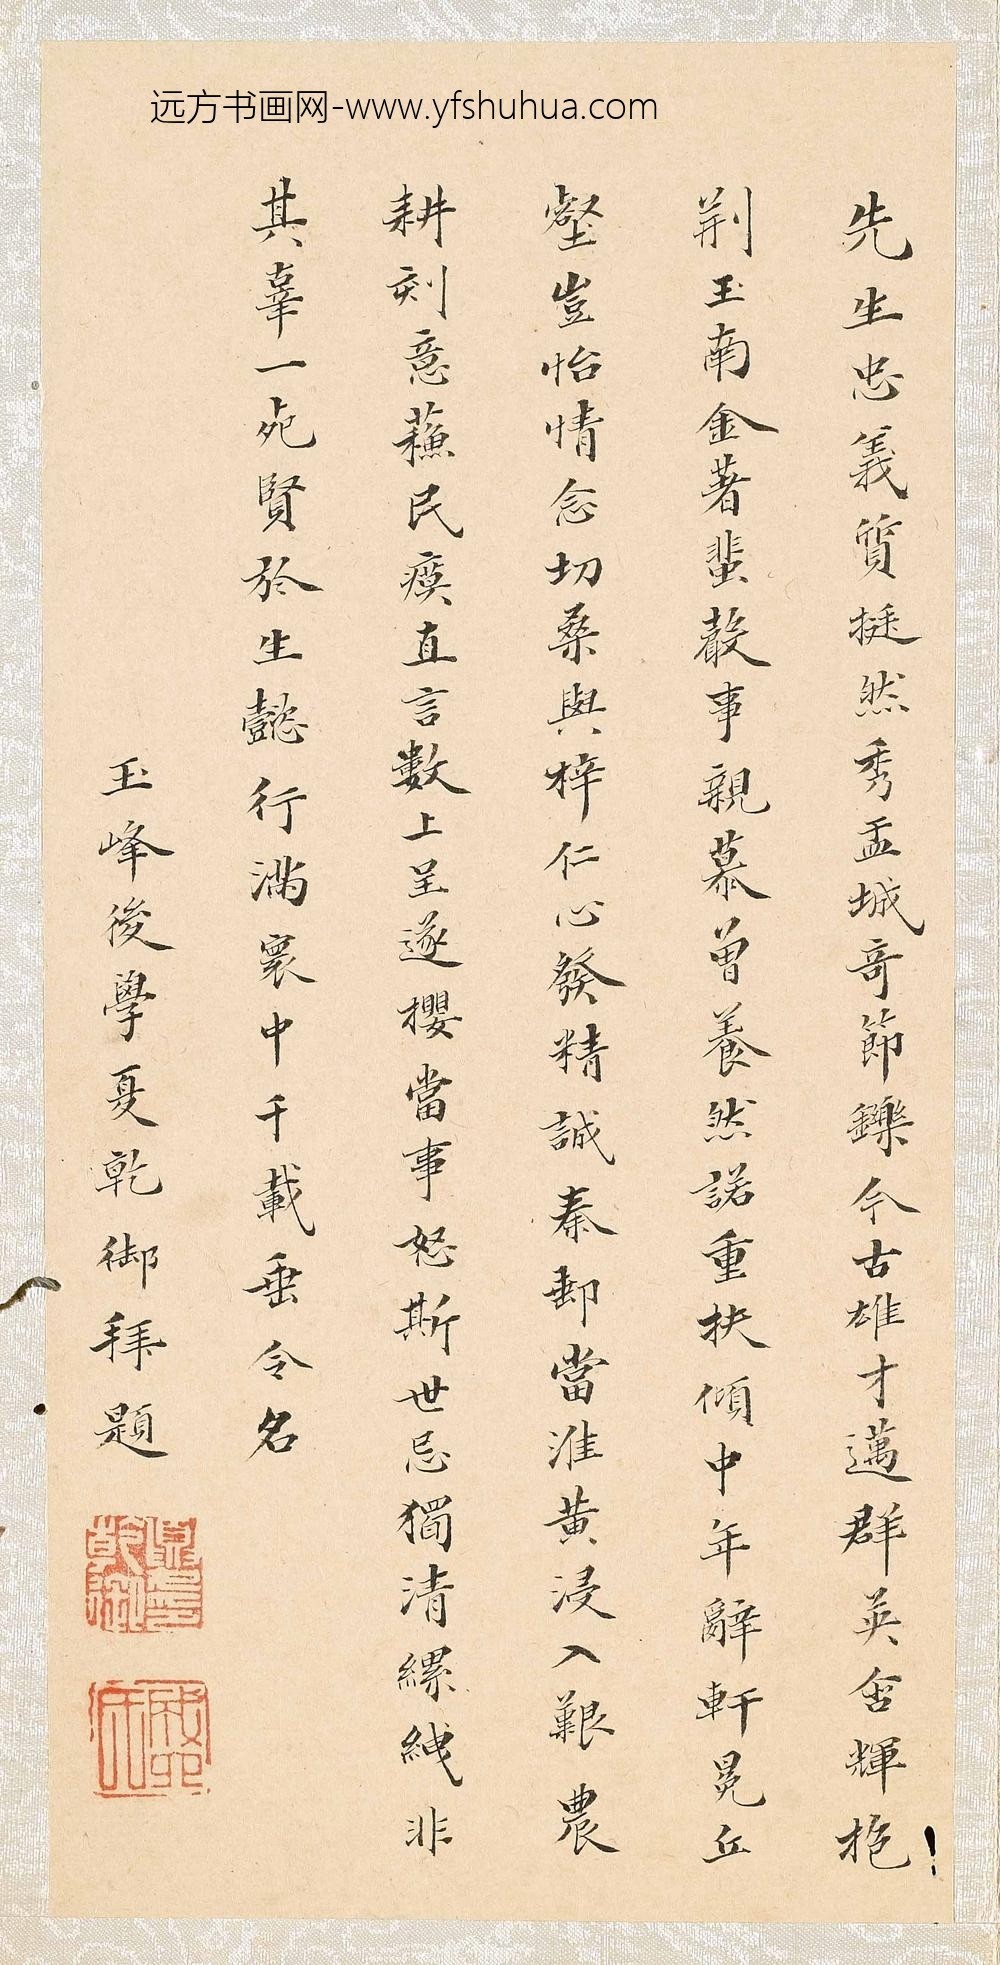 远方书画网-www.yfshuhua.com
先生忠義質挺然秀盂城奇節鑠今古雄才邁群英含輝抱
荆玉南金著蜚聲事親慕曾養然諾重扶傾中年辭軒冕丘
壑豈怡情念切桑與梓仁心發精誠秦郵當淮黃浸入艱農
耕刻意蘓民瘼直言數上呈遂攖當事怒斯世忌獨清縲絏非
其辜一死賢於生懿行滿寰中千載垂令名
玉峰後學夏乾御拜題